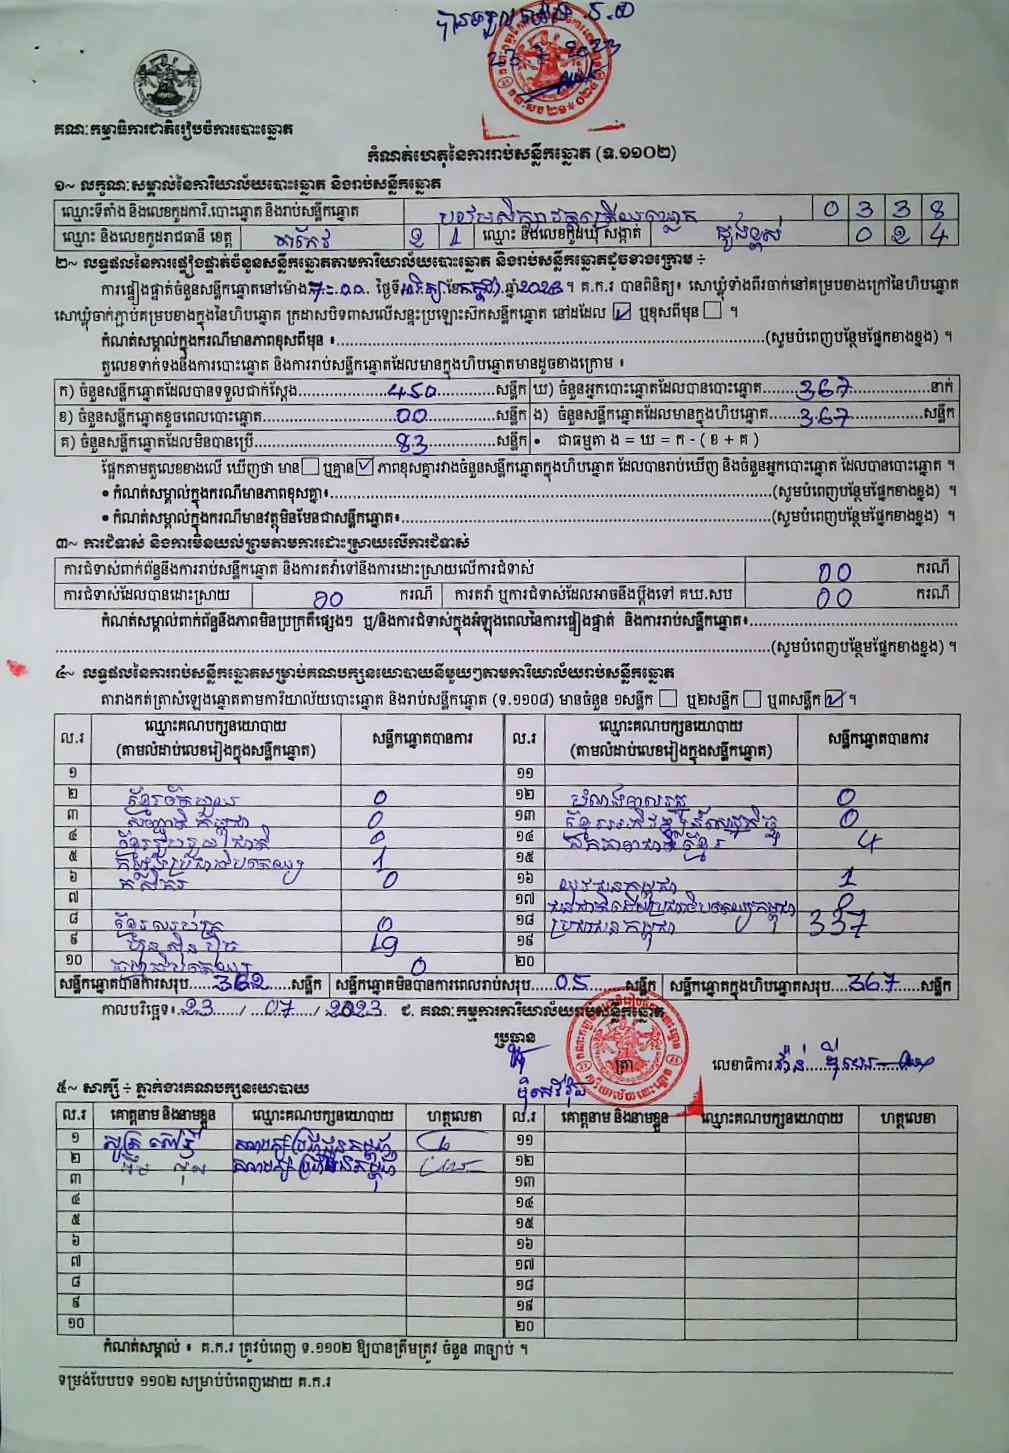 គណៈកម្មាធិការជាតិរៀបចំការបោះឆ្នោត
កំណត់ហេតុនៃការរាប់សន្លឹកឆ្នោត (ទ.១១០២)
១~ លក្ខណៈសម្គាល់នៃការិយាល័យបោះឆ្នោត និងរាប់សន្លឹកឆ្នោត
ឈ្មោះទីតាំង និងលេខកូដការិ.បោះឆ្នោត និងរាប់សន្លឹកឆ្នោត 0 3 3 8
ឈ្មោះ និងលេខកូដរាជធានី ខេត្ត តាកែវ 2 1 ឈ្មោះ និងលេខកូដឃុំ សង្កាត់ 0 2 4
២~ លទ្ធផលនៃការផ្ទៀងផ្ទាត់ចំនួនសន្លឹកឆ្នោតតាមការិយាល័យបោះឆ្នោត និងរាប់សន្លឹកឆ្នោតដូចខាងក្រោម ÷
ការផ្ទៀងផ្ទាត់ចំនួនសន្លឹកឆ្នោតនៅម៉ោង ថ្ងៃទី អាទិត្យ ខែ កក្កដា ឆ្នាំ 2023 ។ គ.ក.រ បានពិនិត្យ៖ សោឃ្លុំទាំងពីរចាក់នៅគម្របខាងក្រៅនៃហិបឆ្នោត
សោឃ្លុំចាក់ភ្ជាប់គម្របខាងក្នុងនៃហិបឆ្នោត ក្រដាសបិទពាសលើសន្ទះប្រឡោះស៊កសន្លឹកឆ្នោត នៅដដែល ☑ ឬខុសពីមុន ☐ ។
កំណត់សម្គាល់ក្នុងករណីមានភាពខុសពីមុន ៖ (សូមបំពេញបន្ថែមផ្នែកខាងខ្នង) ។
តួលេខទាក់ទងនឹងការបោះឆ្នោត និងការរាប់សន្លឹកឆ្នោតដែលមានក្នុងហិបឆ្នោតមានដូចខាងក្រោម ៖
ក) ចំនួនសន្លឹកឆ្នោតដែលបានទទួលជាក់ស្ដែង 450 សន្លឹក ឃ) ចំនួនអ្នកបោះឆ្នោតដែលបានបោះឆ្នោត 367 នាក់
ខ) ចំនួនសន្លឹកឆ្នោតខូចពេលបោះឆ្នោត 00 សន្លឹក ង) ចំនួនសន្លឹកឆ្នោតដែលមានក្នុងហិបឆ្នោត 367 សន្លឹក
គ) ចំនួនសន្លឹកឆ្នោតដែលមិនបានប្រើ 83 សន្លឹក • ជាធម្មតា ង = ឃ = ក - ( ខ + គ )
ផ្អែកតាមតួលេខខាងលើ ឃើញថា មាន ☐ ឬគ្មាន ☑ ភាពខុសគ្នារវាងចំនួនសន្លឹកឆ្នោតក្នុងហិបឆ្នោត ដែលបានរាប់ឃើញ និងចំនួនអ្នកបោះឆ្នោត ដែលបានបោះឆ្នោត ។
• កំណត់សម្គាល់ក្នុងករណីមានភាពខុសគ្នា៖ (សូមបំពេញបន្ថែមផ្នែកខាងខ្នង) ។
• កំណត់សម្គាល់ក្នុងករណីមានវត្ថុមិនមែនជាសន្លឹកឆ្នោត៖ (សូមបំពេញបន្ថែមផ្នែកខាងខ្នង) ។
៣~ ការជំទាស់ និងការមិនយល់ព្រមតាមការដោះស្រាយលើការជំទាស់
ការជំទាស់ពាក់ព័ន្ធនឹងការរាប់សន្លឹកឆ្នោត និងការតវ៉ាទៅនឹងការដោះស្រាយលើការជំទាស់ 00 ករណី
ការជំទាស់ដែលបានដោះស្រាយ 00 ករណី ការតវ៉ា ឬការជំទាស់ដែលអាចនឹងប្ដឹងទៅ គឃ.សប 00 ករណី
កំណត់សម្គាល់ពាក់ព័ន្ធនឹងភាពមិនប្រក្រតីផ្សេងៗ ឬ/និងការជំទាស់ក្នុងអំឡុងពេលនៃការផ្ទៀងផ្ទាត់ និងការរាប់សន្លឹកឆ្នោត៖
(សូមបំពេញបន្ថែមផ្នែកខាងខ្នង) ។
៤~ លទ្ធផលនៃការរាប់សន្លឹកឆ្នោតសម្រាប់គណបក្សនយោបាយនីមួយៗតាមការិយាល័យរាប់សន្លឹកឆ្នោត
តារាងកត់ត្រាសំឡេងឆ្នោតតាមការិយាល័យបោះឆ្នោត និងរាប់សន្លឹកឆ្នោត (ទ.១១០៨) មានចំនួន ១សន្លឹក ☐ ឬ២សន្លឹក ☐ ឬ៣សន្លឹក ☑ ។
ល.រ ឈ្មោះគណបក្សនយោបាយ (តាមលំដាប់លេខរៀងក្នុងសន្លឹកឆ្នោត) សន្លឹកឆ្នោតបានការ ល.រ ឈ្មោះគណបក្សនយោបាយ (តាមលំដាប់លេខរៀងក្នុងសន្លឹកឆ្នោត) សន្លឹកឆ្នោតបានការ
១ ១១
២ 0 ១២ 0
៣ 0 ១៣ 0
៤ ខ្មែររួបរួមជាតិ 0 ១៤ ឯកភាពជាតិខ្មែរ 4
៥ 1 ១៥
៦ កសិករ 0 ១៦ យុវជនកម្ពុជា 1
៧ ១៧ 0
៨ 0 ១៨ ប្រជាជនកម្ពុជា 337
៩ ហ៊្វុនស៊ិនប៉ិច 19 ១៩
១០ 0 ២០
សន្លឹកឆ្នោតបានការសរុប 362 សន្លឹក សន្លឹកឆ្នោតមិនបានការពេលរាប់សរុប 05 សន្លឹក សន្លឹកឆ្នោតក្នុងហិបឆ្នោតសរុប 367 សន្លឹក
កាលបរិច្ឆេទ៖ 23 / 07 / 2023 ជ. គណៈកម្មការការិយាល័យរាប់សន្លឹកឆ្នោត
ប្រធាន
ត្រា លេខាធិការ
៥~ សាក្សី ÷ ភ្នាក់ងារគណបក្សនយោបាយ
ល.រ គោត្តនាម និងនាមខ្លួន ឈ្មោះគណបក្សនយោបាយ ហត្ថលេខា ល.រ គោត្តនាម និងនាមខ្លួន ឈ្មោះគណបក្សនយោបាយ ហត្ថលេខា
១ គណបក្សប្រជាជនកម្ពុជា ១១
២ គណបក្សប្រជាជនកម្ពុជា ១២
៣ ១៣
៤ ១៤
៥ ១៥
៦ ១៦
៧ ១៧
៨ ១៨
៩ ១៩
១០ ២០
កំណត់សម្គាល់ ៖ គ.ក.រ ត្រូវបំពេញ ទ.១១០២ ឱ្យបានត្រឹមត្រូវ ចំនួន ៣ច្បាប់ ។
ទម្រង់បែបបទ ១១០២ សម្រាប់បំពេញដោយ គ.ក.រ